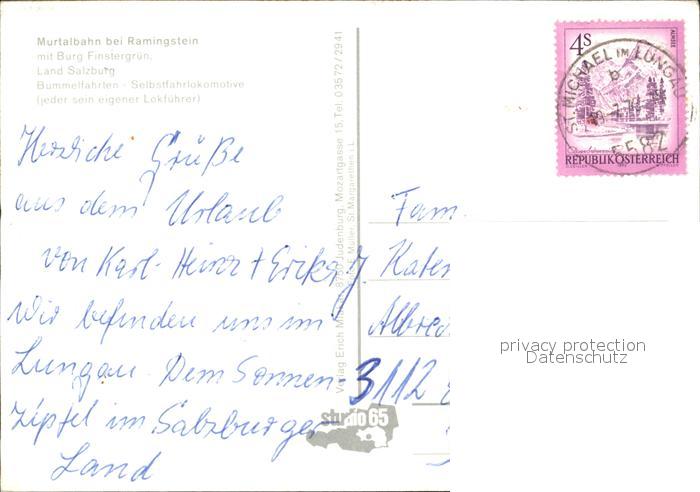 Murtalbahn bei Ramingstein
mit Burg Finstergrün,
Land Salzburg
Bummelfahrten - Selbstfahrlokomotive
(jeder sein eigener Lokführer)
Herzliche Grüße
aus dem Urlaub
von Karl-Heinz + Erika
Wir befinden uns im
Lungau. Dem Sonnen-
zipfel im Salzburger
Land
Verlag Erich 8750 Judenburg, Mozartgasse 15, Tel. 03572/2941
F. Müller, St. Margarethen i. L.
studio 65
4s
ALMSEE
REPUBLIK ÖSTERREICH
ST. MICHAEL IM LUNGAU
b
5582
Fam.
Albrec
3112
privacy protection
Datenschutz